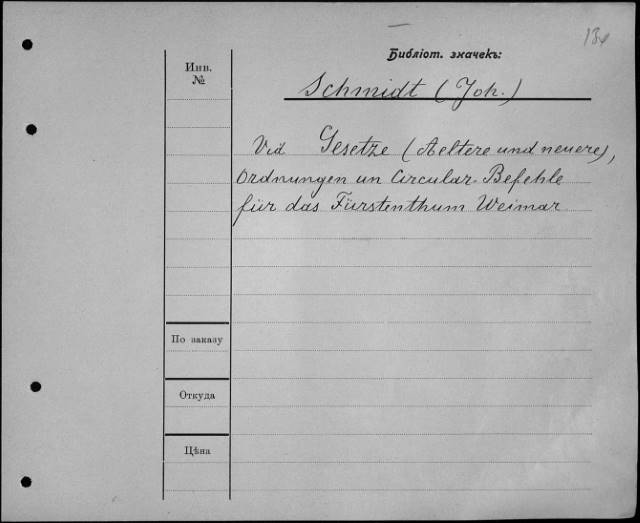 Библіот. значекъ:
Инв.
№
Schmidt (Joh.)
Vid Gesetze (Aeltere und neuere),
Ordnungen un Circular-Befehle
für das Fürstenthum Weimar
По заказу
Откуда
Цѣна